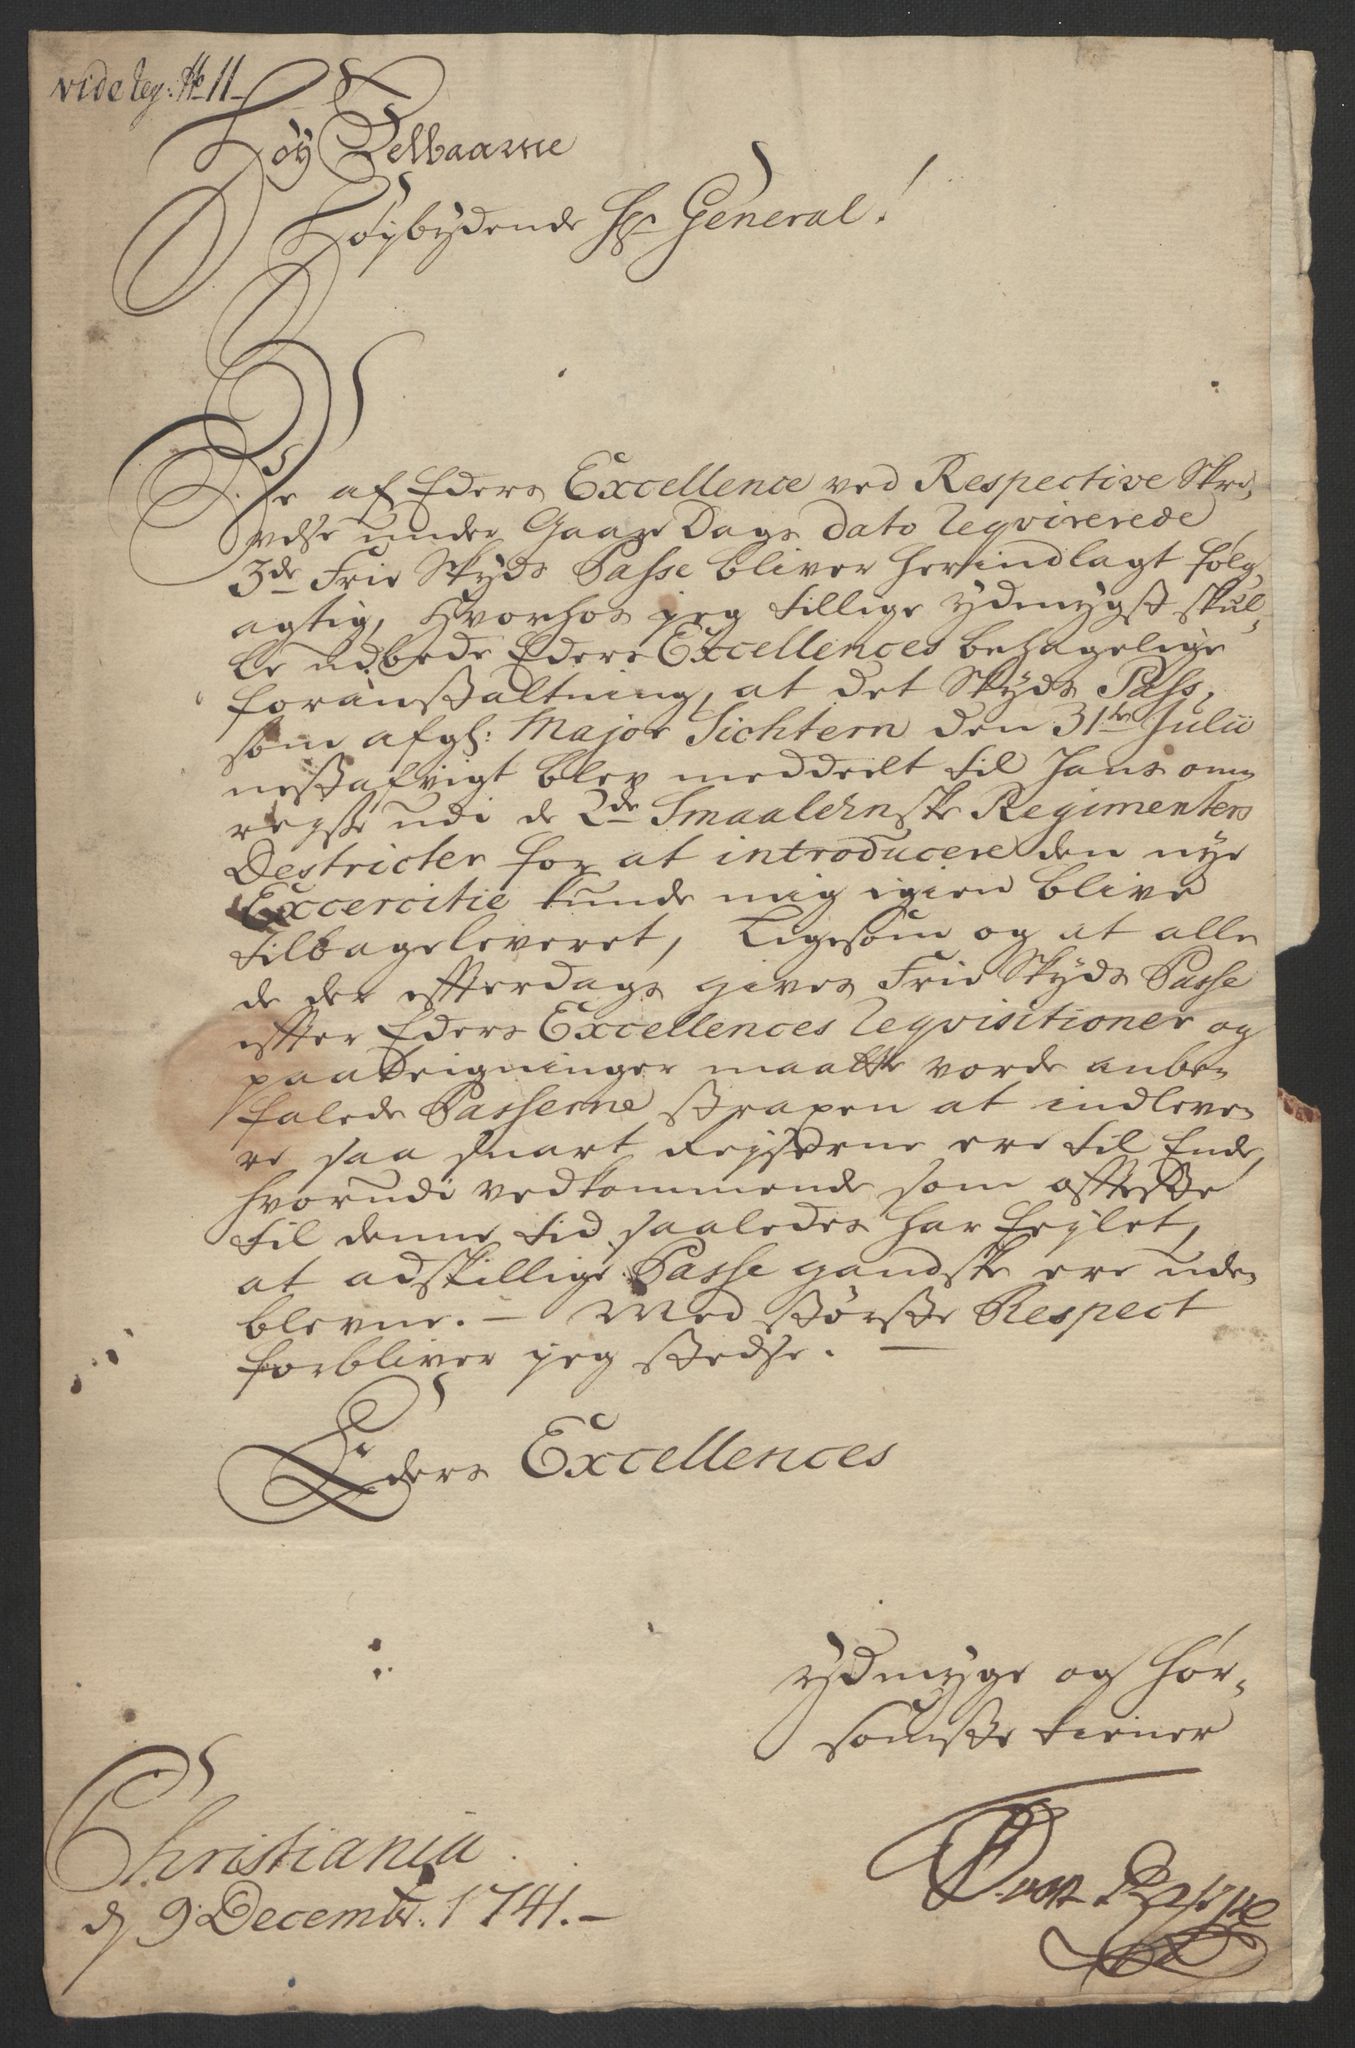 vide reg: № 11
Høy Velbaarne
Høybydende Hr General!
De af Eders Excellence ved Respective Skri-
velse under Gaars Dags dato reqvirerede
3de Frie Skyds Passe bliver herindlagt følg-
agtig, hvorhos jeg tillige ydmygst skul-
le udbede Eders Excellences behagelige
foranstaltning, at det Skyds Pass,
som afgl: Major Sichtern den 31te Julii
nestafvigt blev meddeelt til hans om-
reyse udi de 2de Smaalehnske Regimenters
Destricter for at introducere den nye
Excercitie kunde mig igien blive
tilbageleveret, Ligesom og at alle
de der efterdags gives Frie Skyds Passe
efter Eders Excellences reqvisitioner og
paateigninger maatte vorde anbe-
falede Passerne straxen at indleve-
re saa snart Reyserne ere til Ende,
hvorudi vedkommende som oftesste
til denne tid saaledes har feylet,
at adskillige Passe gandske ere ude-
blevne. – Med største Respect
forbliver jeg stedse. –
Eders Excellences
ydmyge og hør-
somste tiener
Christiania
d 9 Decembr: 1741. –